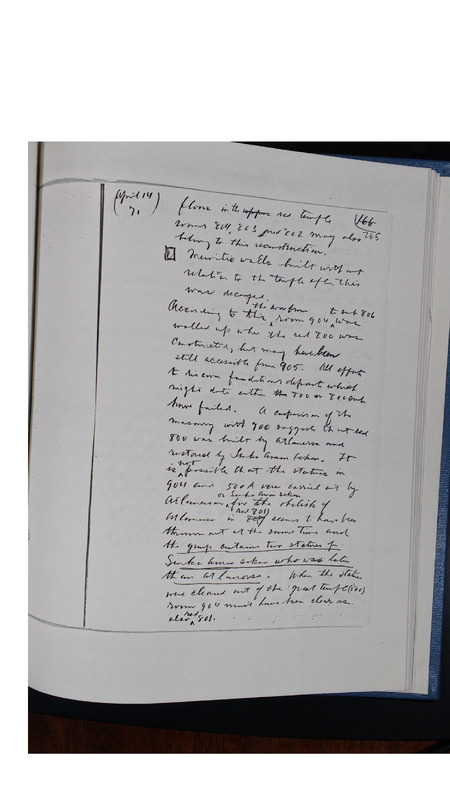 (April 14)
71
166
265
floor in the upper red temple
rooms 804, 803 and 802 may also
belong to this reconstruction.
Meroitic walls built without
relation to the temple after this
was decayed.
According to this, the door from room 904 to out 806 was
walled up when the red 800 was
constructed, but may have been
still accessible from 905. All efforts
to discover foundation deposits which
might date either the 700 or 800
have failed. A comparison of the
masonry with 700 suggests that red
800 was built by Atlanersa and
restored by Senka Aman Seken. It
is not possible that the statues in
904 and 500A were carried out by
Atlanersa or Senka Aman Seken, for the obelisk of
Atlanersa in (red 801) seems to have been
thrown out at the same time and
the group contains two statues of
Senka Aman Seken who was later
than Atlanersa. When the statues
were cleared out of the great temple (500)
room 904 must have been clear as
also red 801.